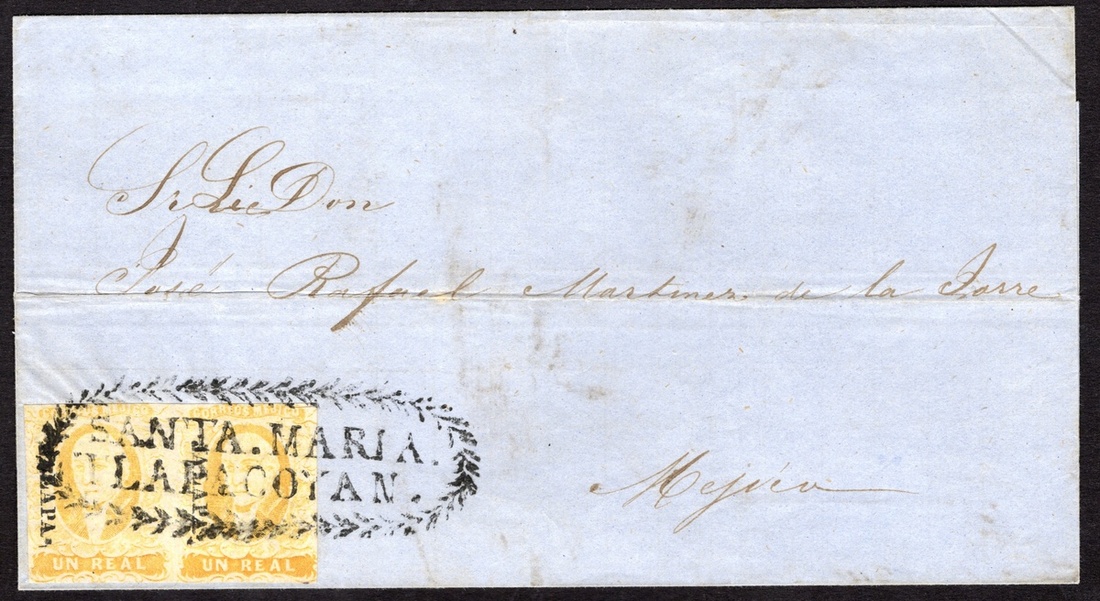 Sr Lic Don
José Rafael Martinez de la Torre
Mejico
CORREOS MEJICO
CORREOS MEJICO
SANTA.MARIA.
TLAPACOYAN.
UN REAL
UN REAL